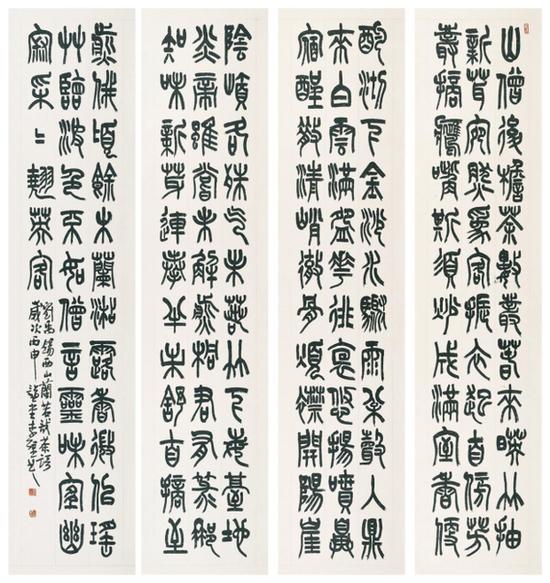 山僧後檐茶數叢春來映竹抽
新茸宛然為客振衣起自傍芳
叢摘鷹嘴斯須炒成滿室香便
酌沏下金沙水驟雨松聲入鼎
來白雲滿盌花徘徊悠揚噴鼻
宿酲散清峭徹骨煩襟開陽崖
陰嶺各殊氣未若竹下莓苔地
炎帝雖嘗未解煎桐君有箓那
知味新芽連拳半未舒自摘至
煎俄頃餘木蘭沾露香微似瑤
草臨波色不如僧言靈味宜幽
寂采〻翹英客
劉禹錫西山蘭若試茶歌
歲次丙申